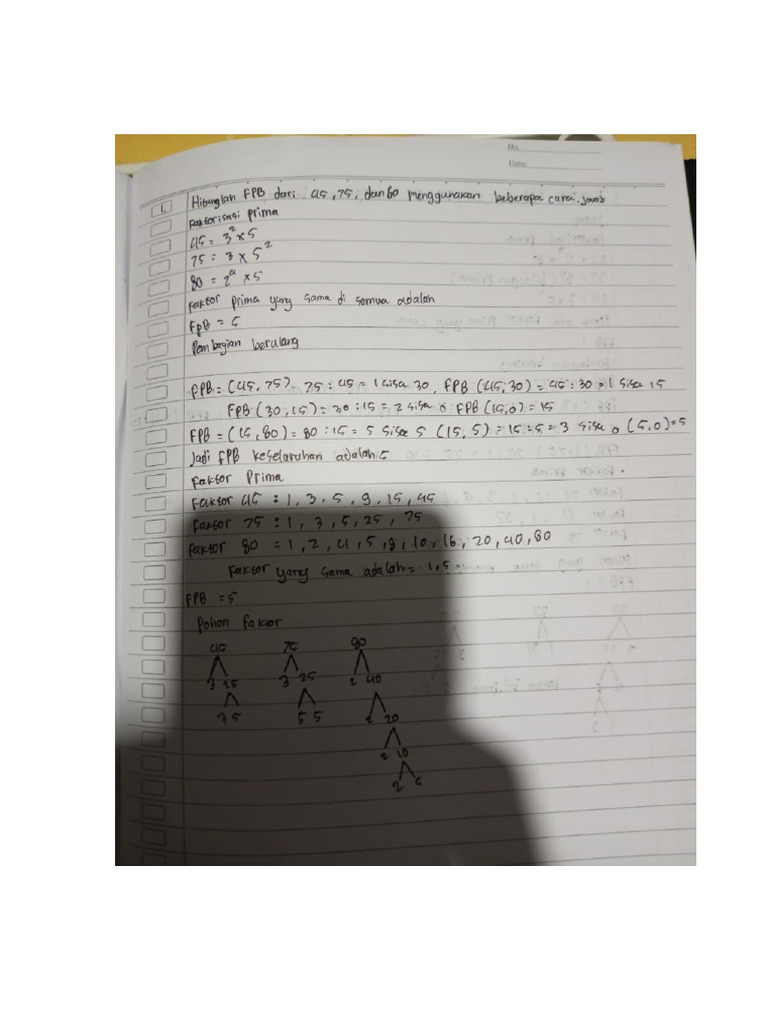 No.
Date:
1. Hitunglah FPB dari 45, 75, dan 80 menggunakan beberapa cara. Jawab
Faktorisasi Prima
45 = 3² × 5
75 = 3 × 5²
80 = 2⁴ × 5
Faktor prima yang sama di semua adalah
FPB = 5
Pembagian berulang
FPB = (45, 75) = 75 : 45 = 1 sisa 30, FPB (45, 30) = 45 : 30 = 1 sisa 15
FPB (30, 15) = 30 : 15 = 2 sisa 0 FPB (15, 0) = 15
FPB = (15, 80) = 80 : 15 = 5 sisa 5 (15, 5) = 15 : 5 = 3 sisa 0 (5, 0) = 5
Jadi FPB keselaruhan adalah 5
Faktor Prima
Faktor 45 : 1, 3, 5, 9, 15, 45
Faktor 75 : 1, 3, 5, 25, 75
Faktor 80 = 1, 2, 4, 5, 8, 10, 16, 20, 40, 80
Faktor yang sama adalah = 1, 5
FPB = 5
Pohon faktor
45 75 80
3 15 3 25 2 40
3 5 5 5 2 20
2 10
2 5